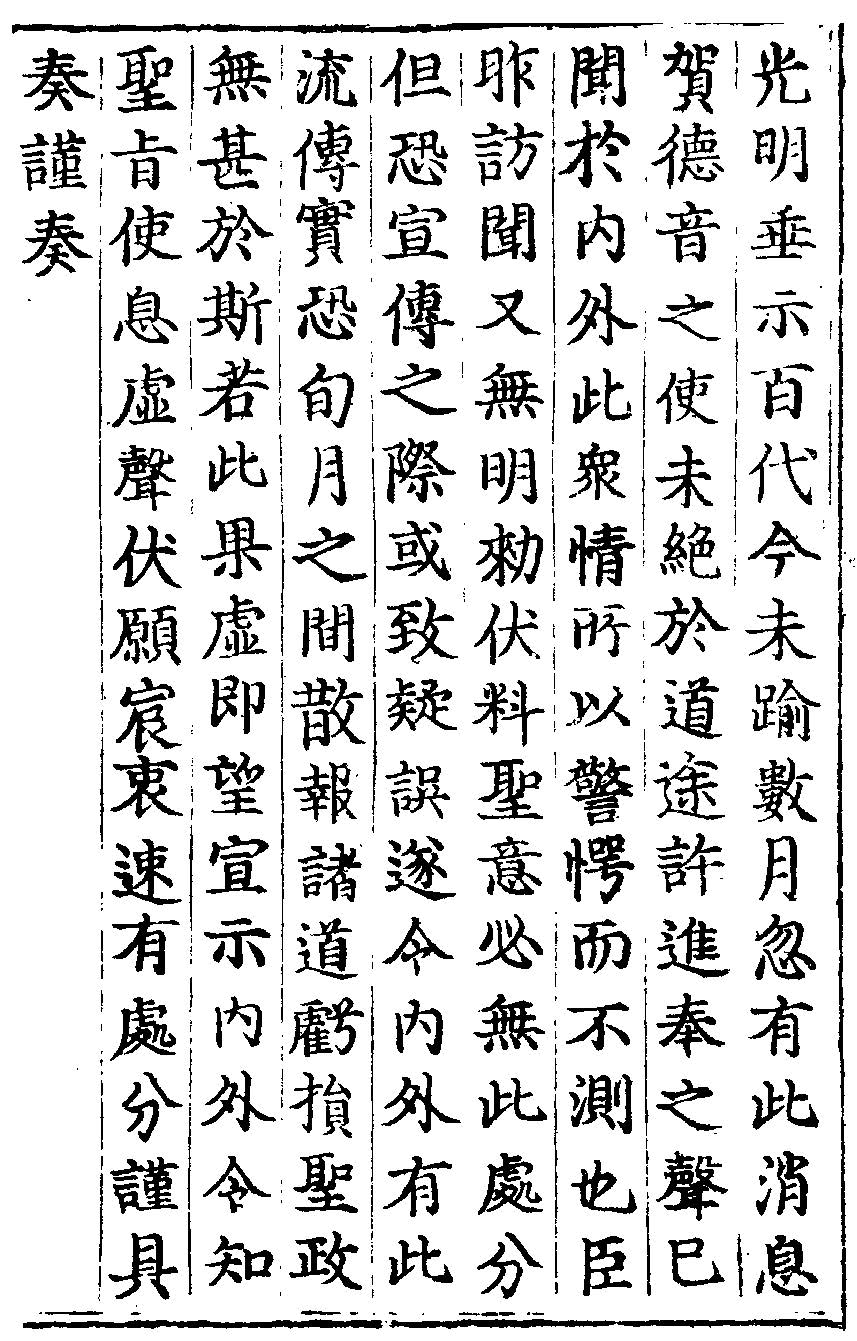 光明垂示百代今未踰數月忽有此消息
賀德音之使未絕於道途許進奉之聲巳
聞於内外此衆情所以警愕而不測也臣
昨訪聞又無明勑伏料聖意必無此處分
但恐宣傳之際或致疑誤遂令内外有此
流傳實恐旬月之間散報諸道虧損聖政
無甚於斯若此果虛即望宣示内外令知
聖旨使息虛聲伏願宸衷速有處分謹具
奏謹奏